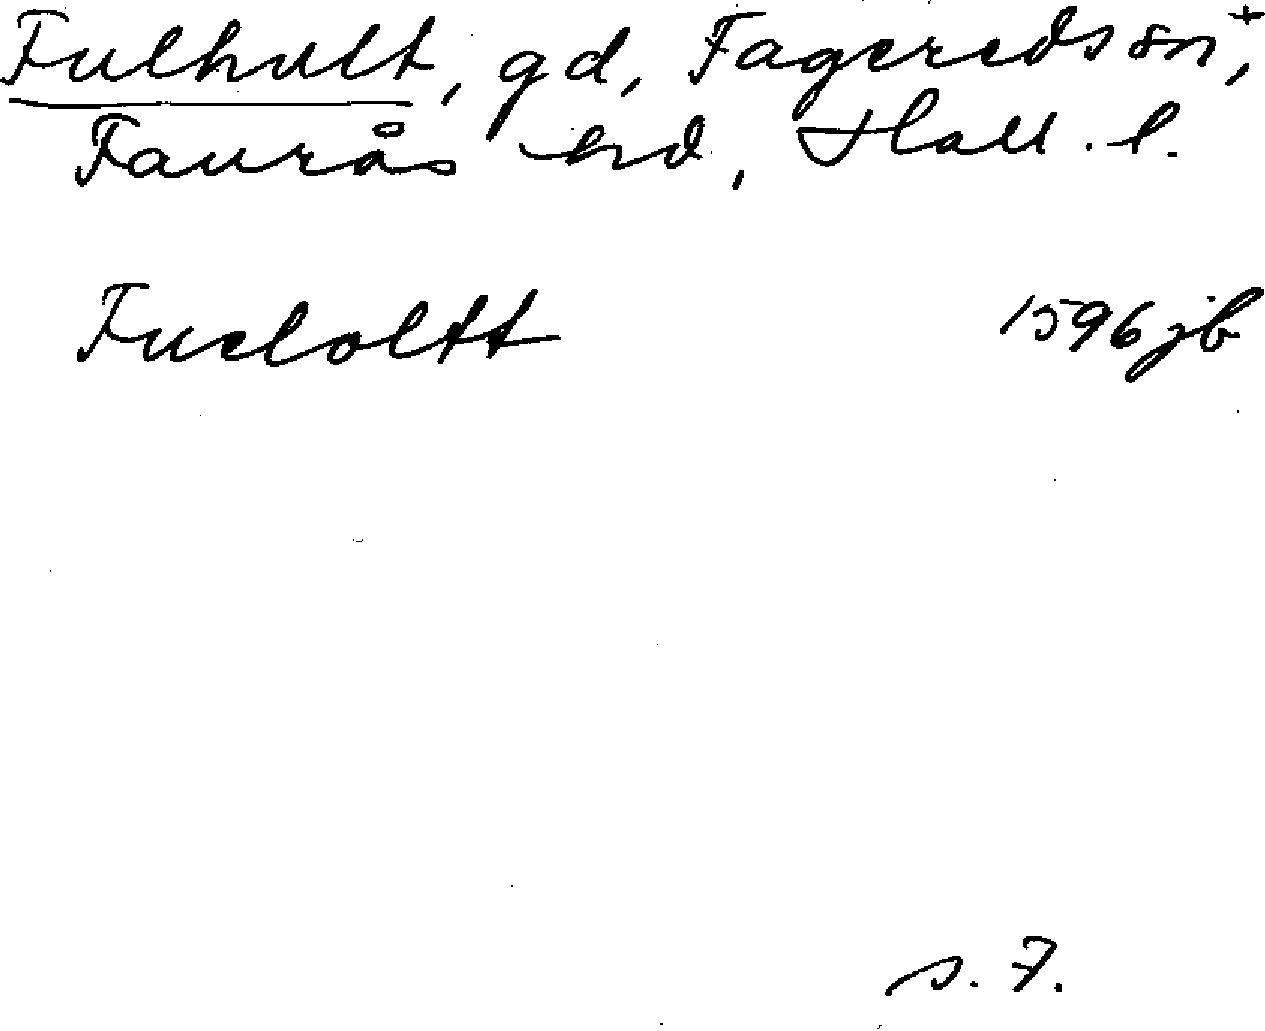 Fulhult, gd, Fageredssn⁺,
Faurås hd, Hall. l.
Fueloltt 1596 jb
s. 7.